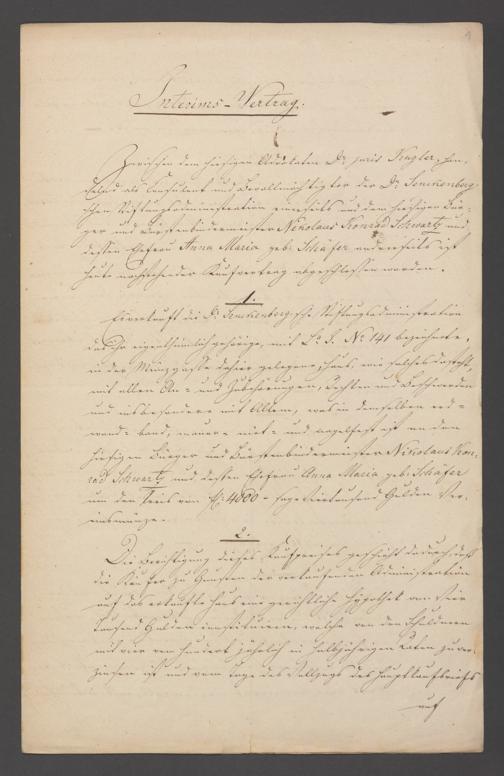 Interims-Vertrag.
Zwischen dem hiesigen Advokaten Dr. juris Kugler, han-
delnd als Consulent und Bevollmächtigter der Dr. Senckenberg
schen Stiftungsadministration einerseits und dem hiesigen Bür-
ger und Bürstenbindermeister Nikolaus Konrad Schwartz und
dessen Ehefrau Anna Maria geb. Schäfer andererseits ist
heute nachstehender Kaufvertrag abgeschlossen worden.
1.
Es verkauft die Dr. Senckenberg'sche Stiftungsadministration
das ihr eigenthümlich gehörige, mit No. 141 bezeichnete,
in der Münzgasse dahier gelegene Haus, wie solches dasteht,
mit allen An- und Zubehörungen, Rechten und Beschwerden
und insbesondere mit Allem, was in demselben erd-
wand- band, mauer- niet- und nagelfest ist an den
hiesigen Bürger und Bürstenbindermeister Nikolaus Kon-
rad Schwartz und dessen Ehefrau Anna Maria geb. Schäfer
um den Preis von fl. 4000 - sage Viertausend Gulden Ver-
einsmünze.
2.
Die Berichtigung dieses Kaufpreises geschieht dadurch, daß
die Käufer zu Gunsten der verkaufenden Administration
auf das erkaufte Haus eine gerichtliche Hypothek von vier
tausend Gulden constituiren, welche von den Schuldnern
mit vier vom Hundert jährlich in halbjährigen Raten zu ver-
zinsen ist und vom Tage des Vollzugs des Hauptkaufbriefs
auf